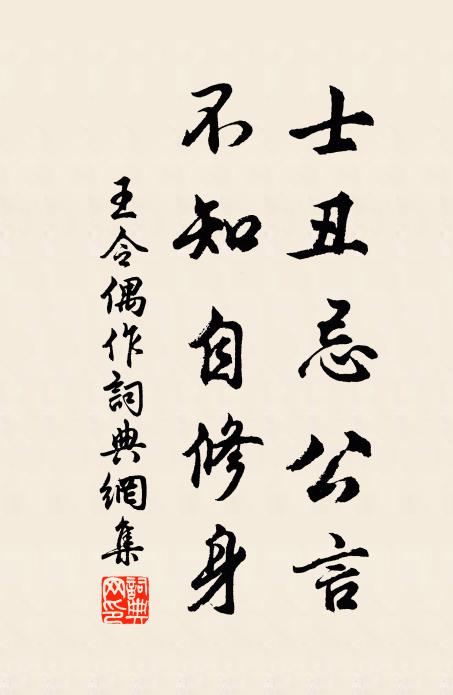 士丑忌公言
不知自修身
王令偶作詞典網集
詞典
网印